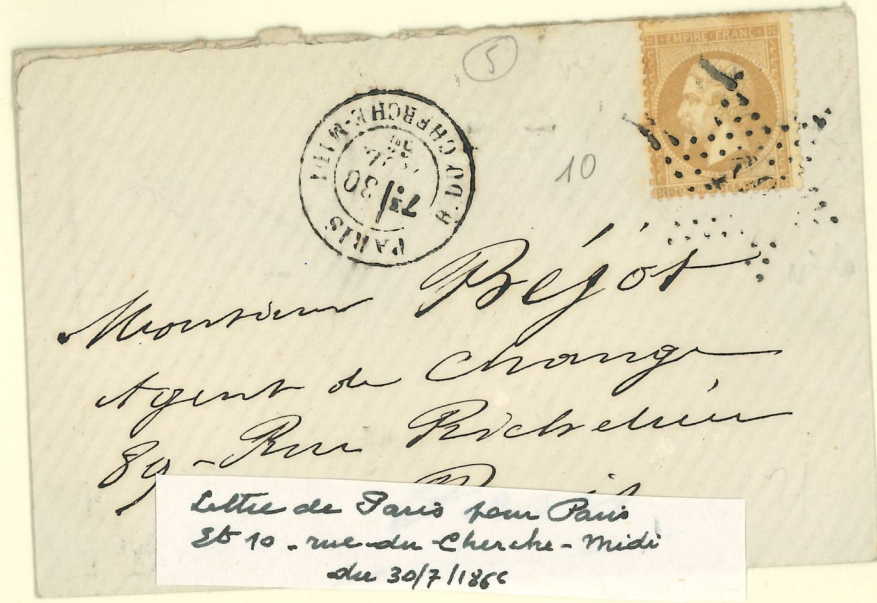 5
EMPIRE FRANC
10
PARIS R. DU CHERCHE-MIDI
7E/30
Monsieur Bégot
Agent de Change
89 - Rue Richelieu
Lettre de Paris pour Paris
Et 10 - rue du Cherche-Midi
du 30/7/1866